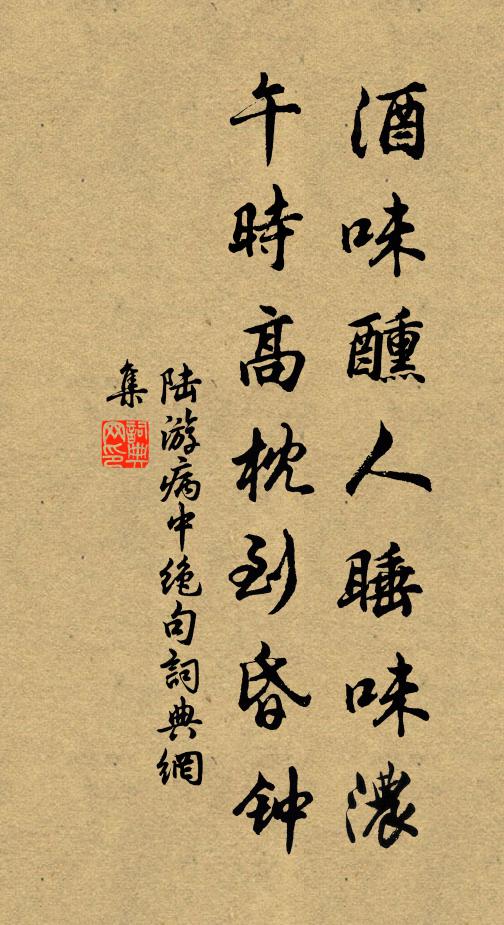 酒味醺人睡味濃
午時高枕到昏钟
陆游病中绝句詞典網
集
詞典
网印